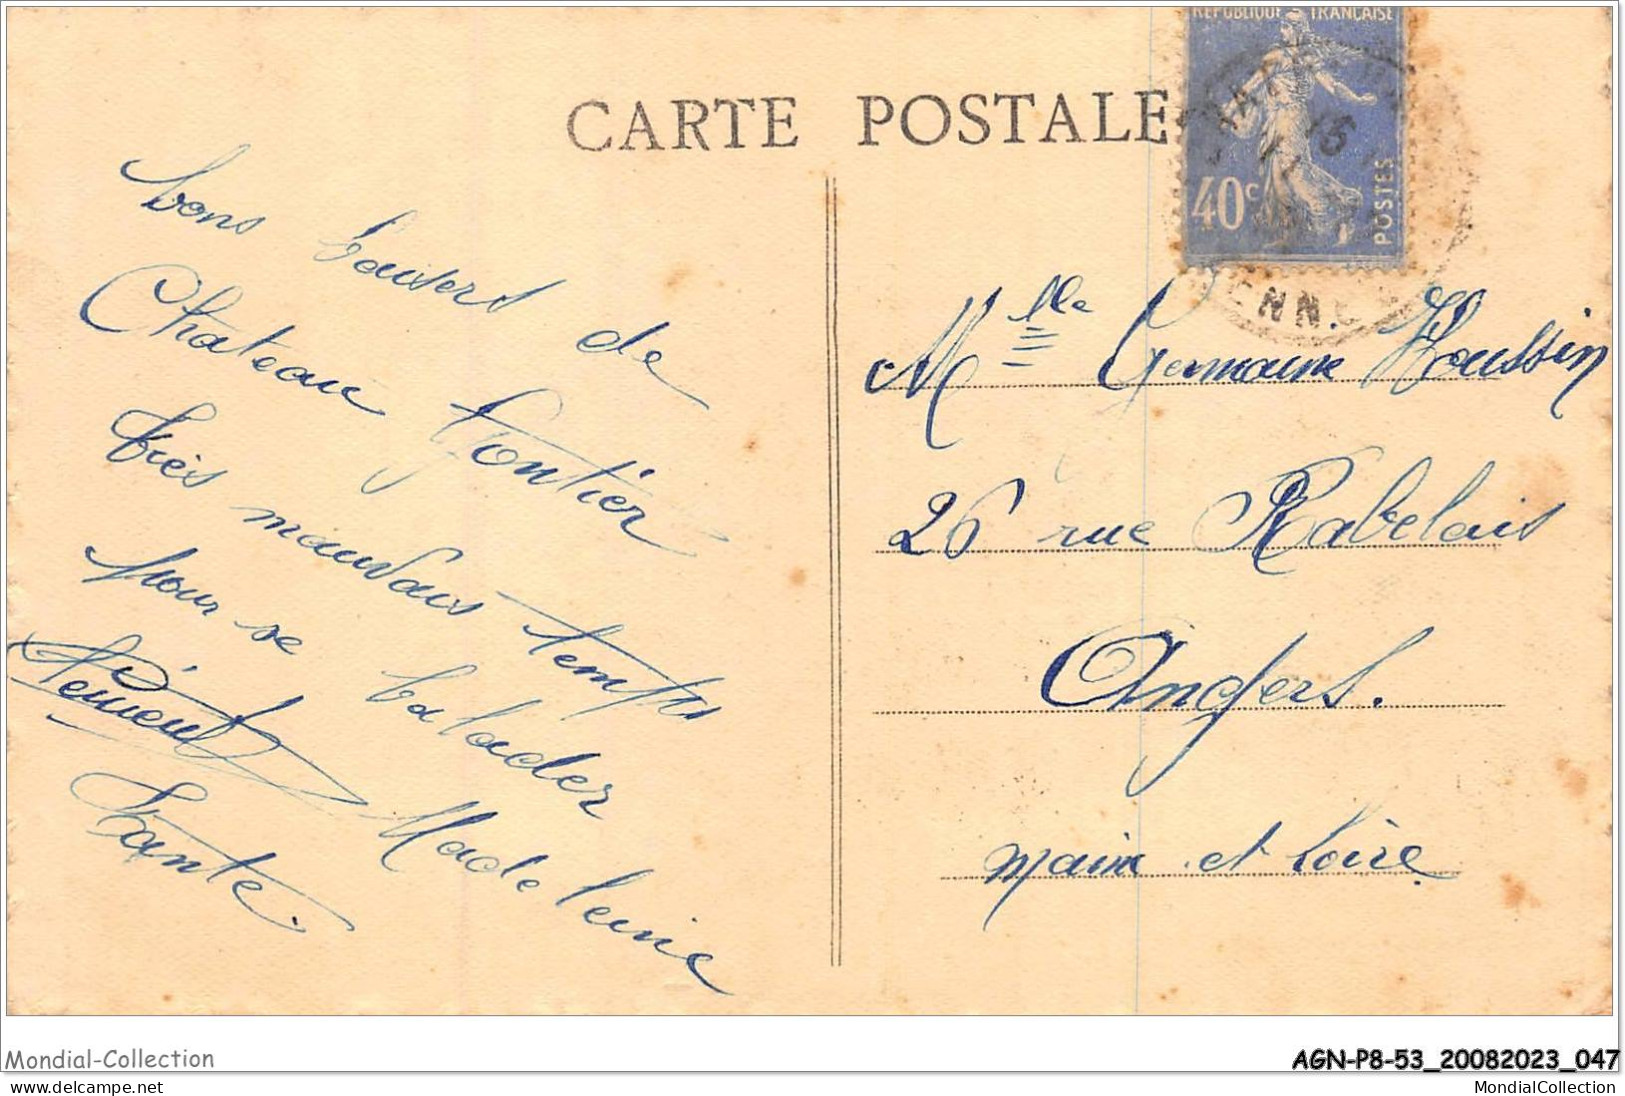 RÉPUBLIQUE FRANÇAISE
CARTE POSTALE
40c
POSTES
15
ENNE
bons baisers de
Chateau Gontier
très mauvais temps
pour se balader
Madeleine
Tante.
Mlle Germaine Houssin
26 rue Rabelais
Angers.
Maine et Loire
Mondial-Collection
AGN-P8-53_20082023_047
www.delcampe.net
MondialCollection